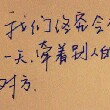 我们终究会
一天，牵着别人的
对方.